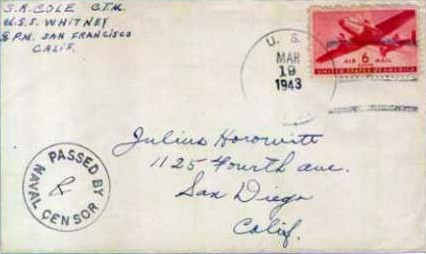 S.R. COLE C.T.M.
U.S.S. WHITNEY
℅ P.M. SAN FRANCISCO
CALIF.
U. S.
MAR
19
1943
AIR 6 MAIL
CENTS
UNITED STATES OF AMERICA
Julius Horowitt
1125 Fourth ave.
San Diego
Calif.
PASSED BY
NAVAL CENSOR